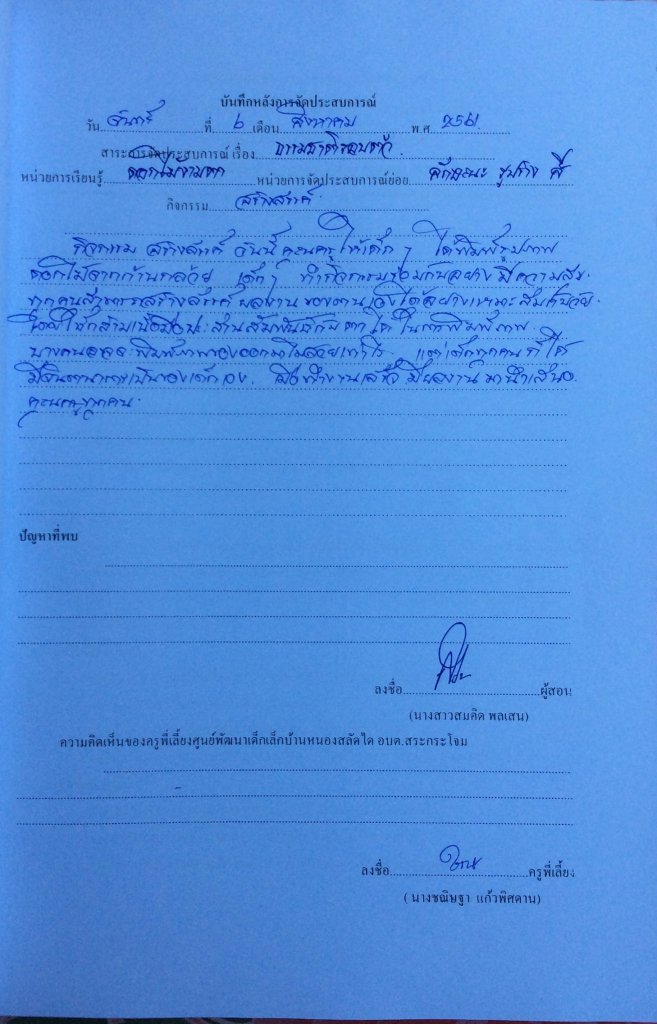 บันทึกหลังการจัดประสบการณ์
วัน จันทร์ ที่ ๖ เดือน สิงหาคม พ.ศ. ๒๕๖๑
สาระการจัดประสบการณ์ เรื่อง ธรรมชาติรอบตัว
หน่วยการเรียนรู้ ดอกไม้งามตา หน่วยการจัดประสบการณ์ย่อย ลักษณะ รูปร่าง สี
กิจกรรม สร้างสรรค์
กิจกรรม สร้างสรรค์ วันนี้ คุณครู ให้เด็ก ๆ ได้พิมพ์รูปภาพ
ดอกไม้จากก้านกล้วย เด็ก ๆ ทำกิจกรรมร่วมกันอย่าง มีความสุข
ทุกคนสามารถสร้างสรรค์ ผลงาน ของตนเองได้อย่างเหมาะสมกับวัย
โดยใช้กล้ามเนื้อมือประสานสัมพันธ์กับตา ได้ ในการพิมพ์ภาพ
บางคนอาจ พิมพ์ภาพของออกมาไม่สวยเท่าไร แต่เด็กทุกคน ก็ ได้
มีจินตนาการเป็นของเด็กเอง เมื่อทำงานเสร็จ มีผลงาน มานำเสนอ
คุณครูทุกคน
ปัญหาที่พบ
ลงชื่อ ผู้สอน
(นางสาวสมคิด พลเสน)
ความคิดเห็นของครูพี่เลี้ยงศูนย์พัฒนาเด็กเล็กบ้านหนองสลัดได อบต.สระกระโจม
ลงชื่อ ครูพี่เลี้ยง
( นางชณิษฐา แก้วพิศดาน)